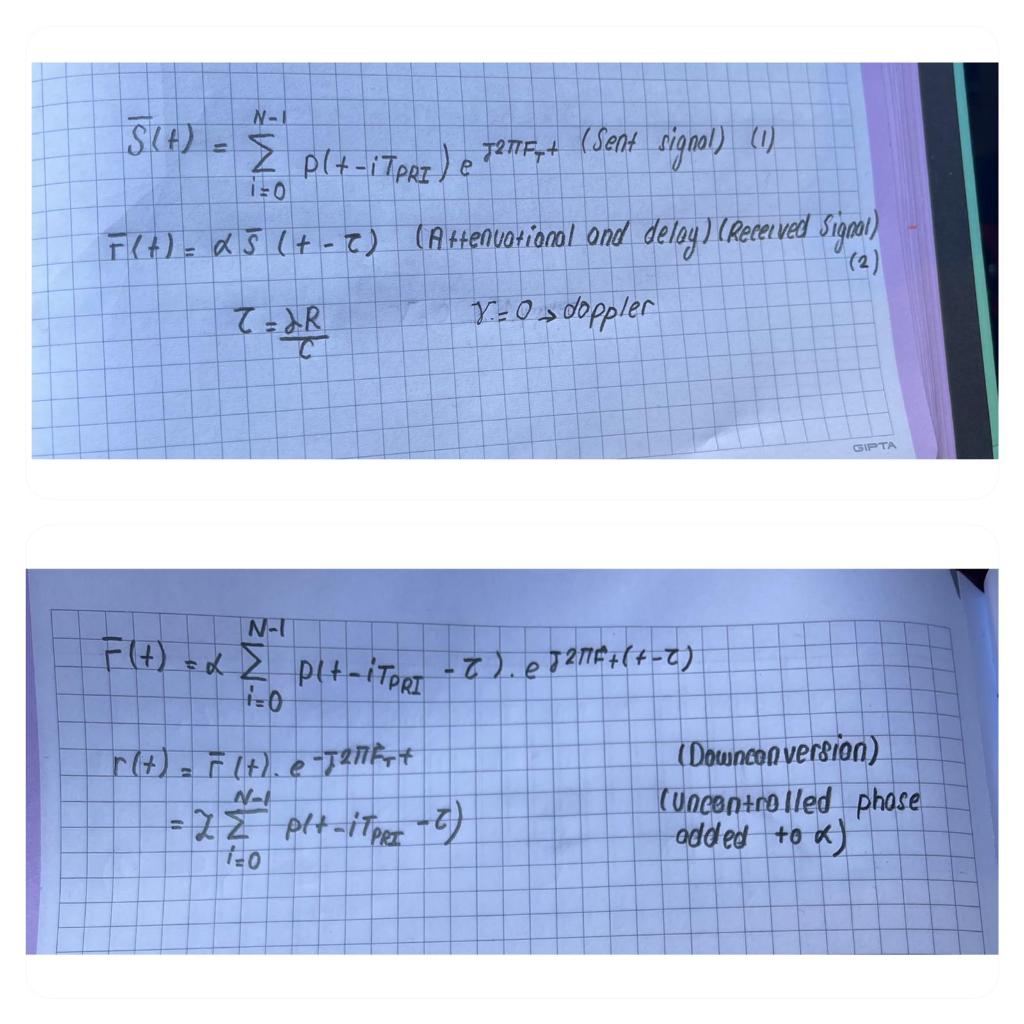 S̅(t) = \sum_{i=0}^{N-1} p(t-iT_{PRI}) e^{J2πF_T t} (Sent signal) (1)
r̅(t) = α s̅ (t-τ) (Attenuational and delay) (Received Signal) (2)
τ = \frac{2R}{C} γ = 0 → doppler
GIPTA
r̅(t) = α \sum_{i=0}^{N-1} p(t-iT_{PRI} - τ). e^{J2πF_t(t-τ)}
r(t) = r̅(t). e^{-J2πF_T t} (Downconversion)
= α \sum_{i=0}^{N-1} p(t-iT_{PRI} - τ) (Uncontrolled phase
added to α)